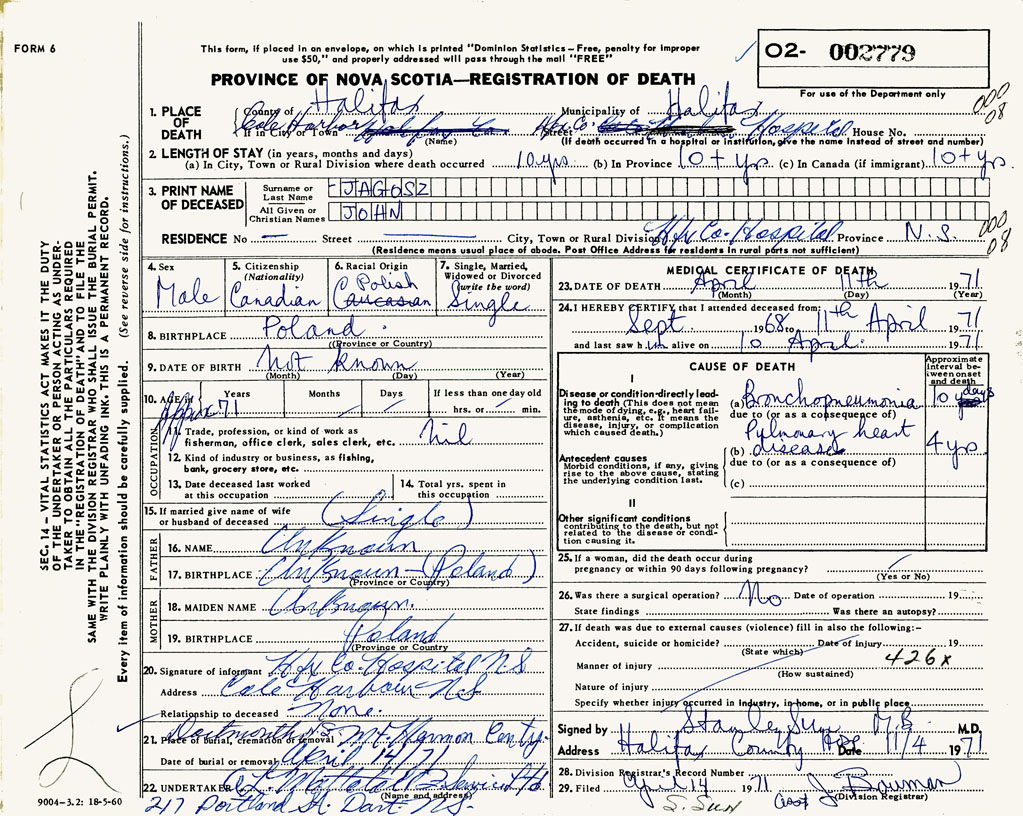 FORM 6
This form, if placed in an envelope, on which is printed "Dominion Statistics – Free, penalty for improper
use $50," and properly addressed will pass through the mail "FREE"
PROVINCE OF NOVA SCOTIA—REGISTRATION OF DEATH
02- 002779
For use of the Department only
000
08
1. PLACE OF DEATH
County of Halifax Municipality of Halifax
Cole Harbour
If in City or Town (Name) Street Hfx Co. Hospital House No.
(If death occurred in a hospital or institution, give the name instead of street and number)
2. LENGTH OF STAY (in years, months and days)
(a) In City, Town or Rural Division where death occurred 10 yrs. (b) In Province 10+ yrs (c) In Canada (if immigrant) 10+ yrs.
3. PRINT NAME OF DECEASED
Surname or Last Name JAGOSZ
All Given or Christian Names JOHN
RESIDENCE No — Street — City, Town or Rural Division Hfx Co. Hospital Province N.S.
000
08
(Residence means usual place of abode. Post Office Address for residents in rural parts not sufficient)
4. Sex Male
5. Citizenship (Nationality) Canadian
6. Racial Origin Polish Caucasian
7. Single, Married, Widowed or Divorced (write the word) Single
8. BIRTHPLACE Poland.
(Province or Country)
9. DATE OF BIRTH Not known
(Month) (Day) (Year)
10. AGE Years Months Days If less than one day old
Approx 71 hrs. or min.
OCCUPATION
11. Trade, profession, or kind of work as
fisherman, office clerk, sales clerk, etc. Nil
12. Kind of industry or business, as fishing,
bank, grocery store, etc.
13. Date deceased last worked
at this occupation
14. Total yrs. spent in
this occupation
15. If married give name of wife
or husband of deceased (Single)
FATHER
16. NAME Unknown
17. BIRTHPLACE Unknown - (Poland)
(Province or Country)
MOTHER
18. MAIDEN NAME Unknown.
19. BIRTHPLACE Poland
(Province or Country
20. Signature of informant Hfx Co. Hospital N.S
Address Cole Harbour N.S.
Relationship to deceased None.
Dartmouth N.S.
21. Place of burial, cremation or removal Mt. Hermon Cemty.
Date of burial or removal April 14/71
22. UNDERTAKER
(Name and address)
217 Portland St. Dart. N.S.
MEDICAL CERTIFICATE OF DEATH
23. DATE OF DEATH April 11th 1971
(Month) (Day) (Year)
24. I HEREBY CERTIFY that I attended deceased from:
Sept 1968 to 11th April 1971
and last saw him alive on 10 April. 1971
CAUSE OF DEATH
Approximate interval between onset and death
I
Disease or condition directly leading to death (This does not mean the mode of dying, e.g., heart failure, asthenia, etc. It means the disease, injury, or complication which caused death.)
(a) Bronchopneumonia 10 days
due to (or as a consequence of)
Antecedent causes
Morbid conditions, if any, giving rise to the above cause, stating the underlying condition last.
Pulmonary heart
(b) disease 4 yrs
due to (or as a consequence of)
(c)
II
Other significant conditions
contributing to the death, but not related to the disease or condition causing it.
25. If a woman, did the death occur during
pregnancy or within 90 days following pregnancy?
(Yes or No)
26. Was there a surgical operation? No Date of operation 19
State findings Was there an autopsy?
27. If death was due to external causes (violence) fill in also the following:-
Accident, suicide or homicide? Date of injury 19
(State which)
426X
Manner of injury
(How sustained)
Nature of injury
Specify whether injury occurred in Industry, in home, or in public place
Signed by Stanley Sun M.B. M.D.
Address Halifax County Date 11/4 1971
28. Division Registrar's Record Number
29. Filed April 14 1971 J. Bauman
(Division Registrar)
S. Sun
SEC. 14 – VITAL STATISTICS ACT MAKES IT THE DUTY
OF THE UNDERTAKER OR PERSON ACTING AS UNDER-
TAKER TO OBTAIN ALL THE PARTICULARS REQUIRED
IN THE "REGISTRATION OF DEATH" AND TO FILE THE
SAME WITH THE DIVISION REGISTRAR WHO SHALL ISSUE THE BURIAL PERMIT.
WRITE PLAINLY WITH UNFADING INK. THIS IS A PERMANENT RECORD.
Every item of information should be carefully supplied. (See reverse side for instructions.)
9004–3.2: 18-5-60